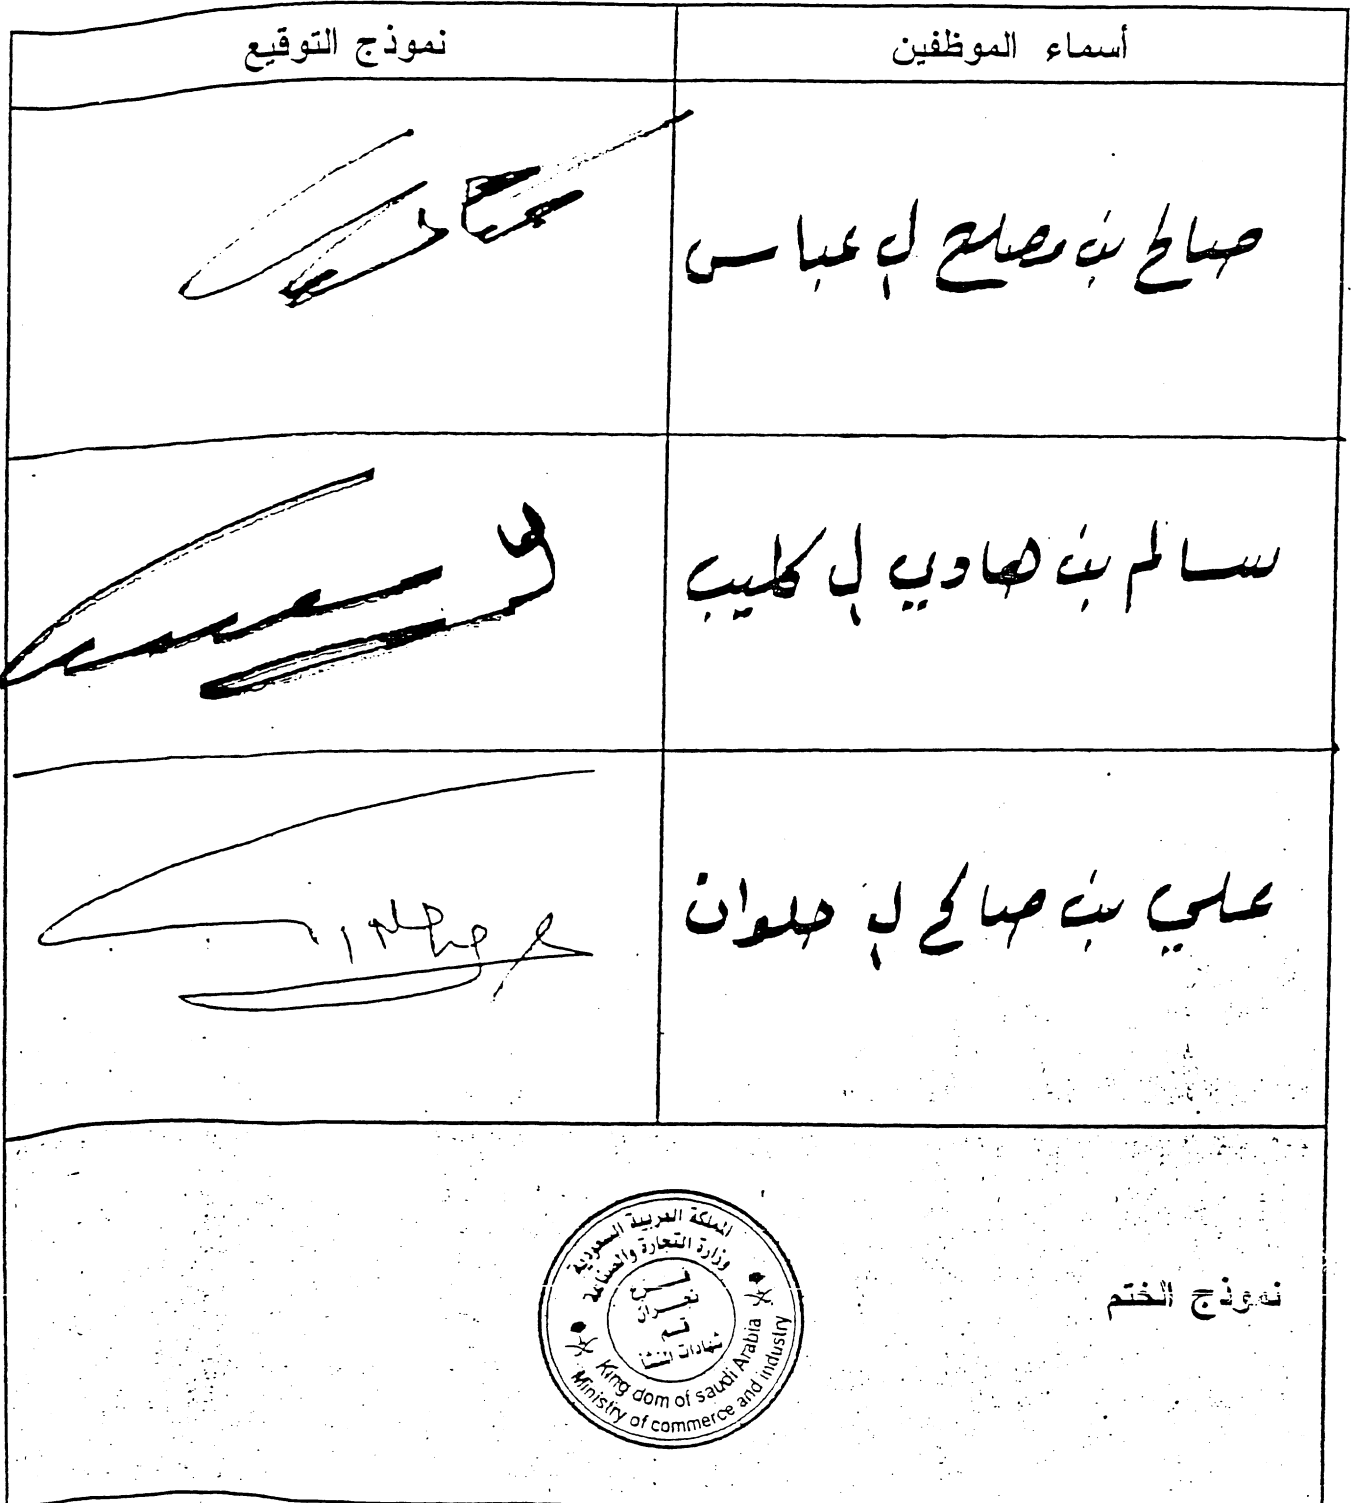 أسماء الموظفين نموذج التوقيع
صالح بن مصلح ال عباس
سالم بن هادي ال كليب
علي بن صالح ال حلوان
نموذج الختم
المملكة العربية السعودية
وزارة التجارة والصناعة
فرع
نجران
قسم
شهادات المنشأ
King dom of saudi Arabia
Ministry of commerce and industry